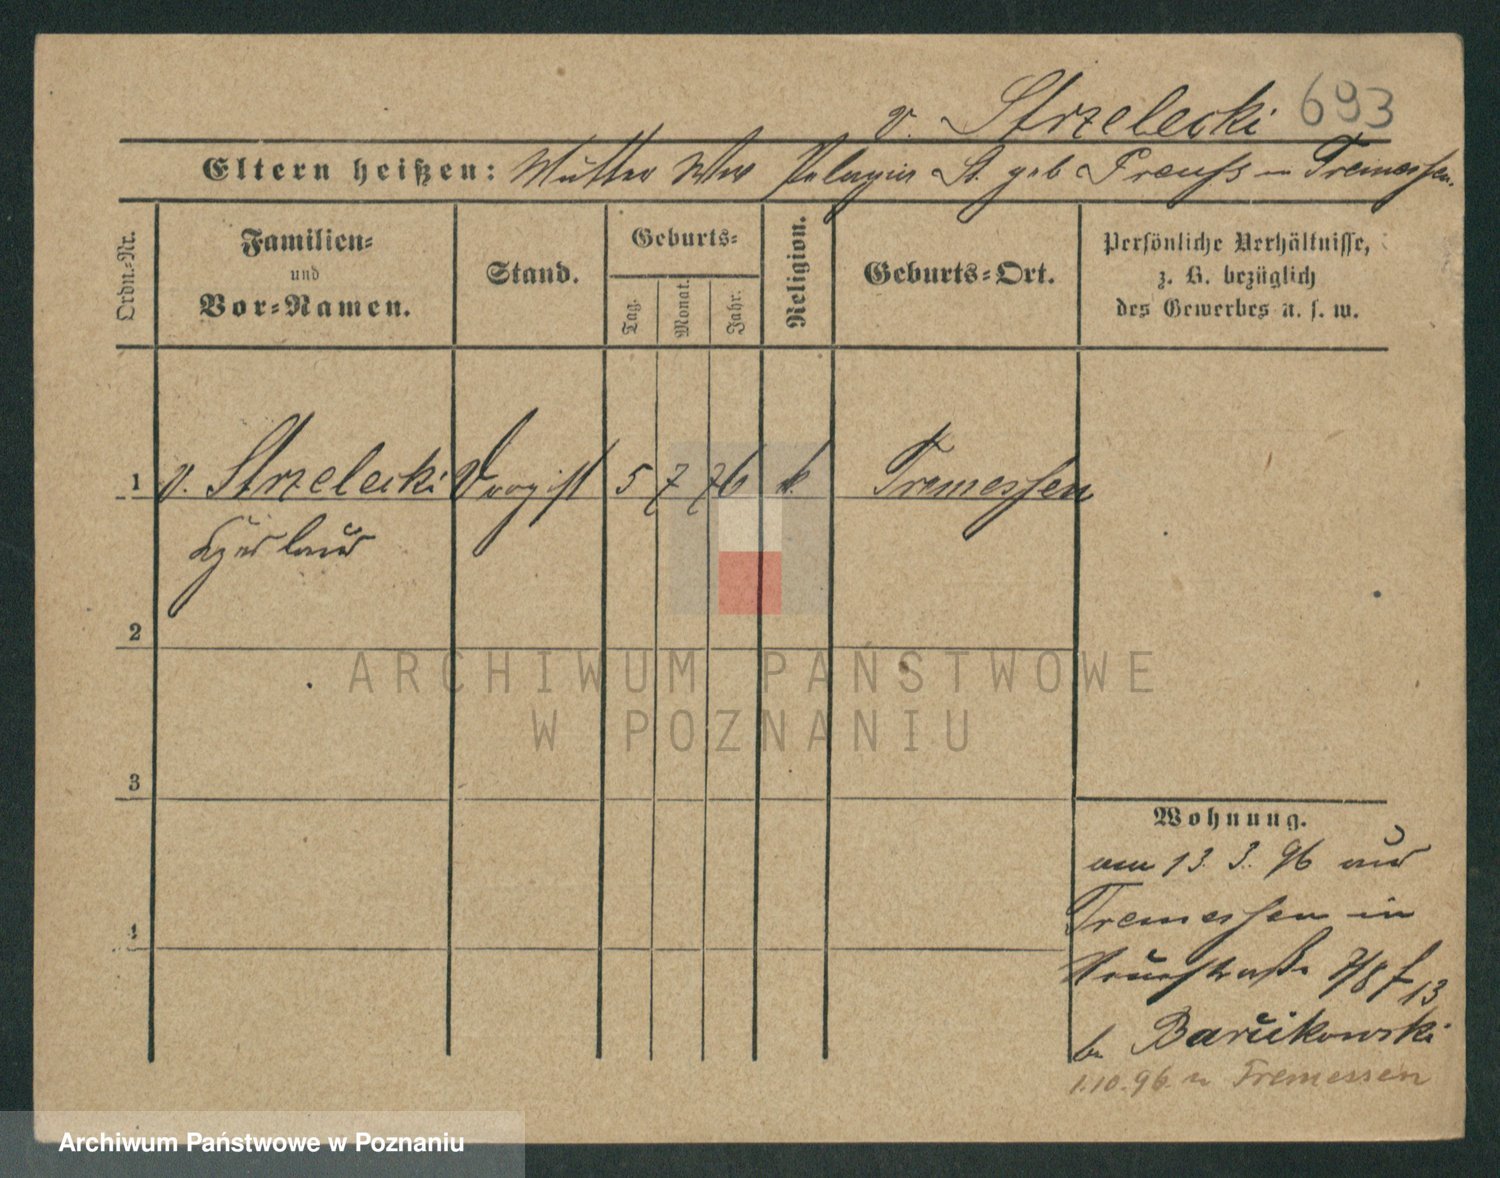 v. Strzelecki 693
Eltern heißen: Mutter Wwe Pelagia St. geb Preuss in Tremessen.
Ordn.-Nr.
Familien-
und
Vor-Namen.
Stand.
Geburts-
Tag.
Monat.
Jahr.
Religion.
Geburts-Ort.
Persönliche Verhältnisse,
z. B. bezüglich
des Gewerbes u. s. w.
1 v. Strzelecki Drogist 5 7 76 k. Tremessen
2
3
4
ARCHIWUM PAŃSTWOWE
W POZNANIU
Wohnung.
am 13. 3. 96 aus
Tremessen in
7/8 13
b.
1.10.96. n Tremessen
Archiwum Państwowe w Poznaniu